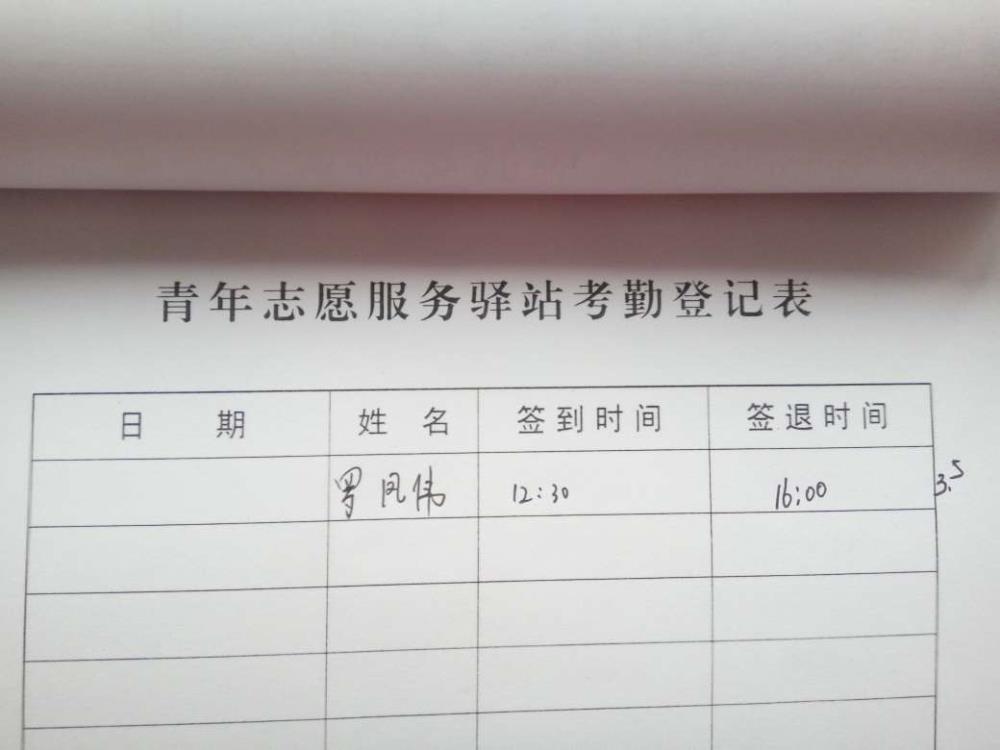 青年志愿服务驿站考勤登记表
日 期 姓 名 签到时间 签退时间
罗凤伟 12:30 16:00 3.5